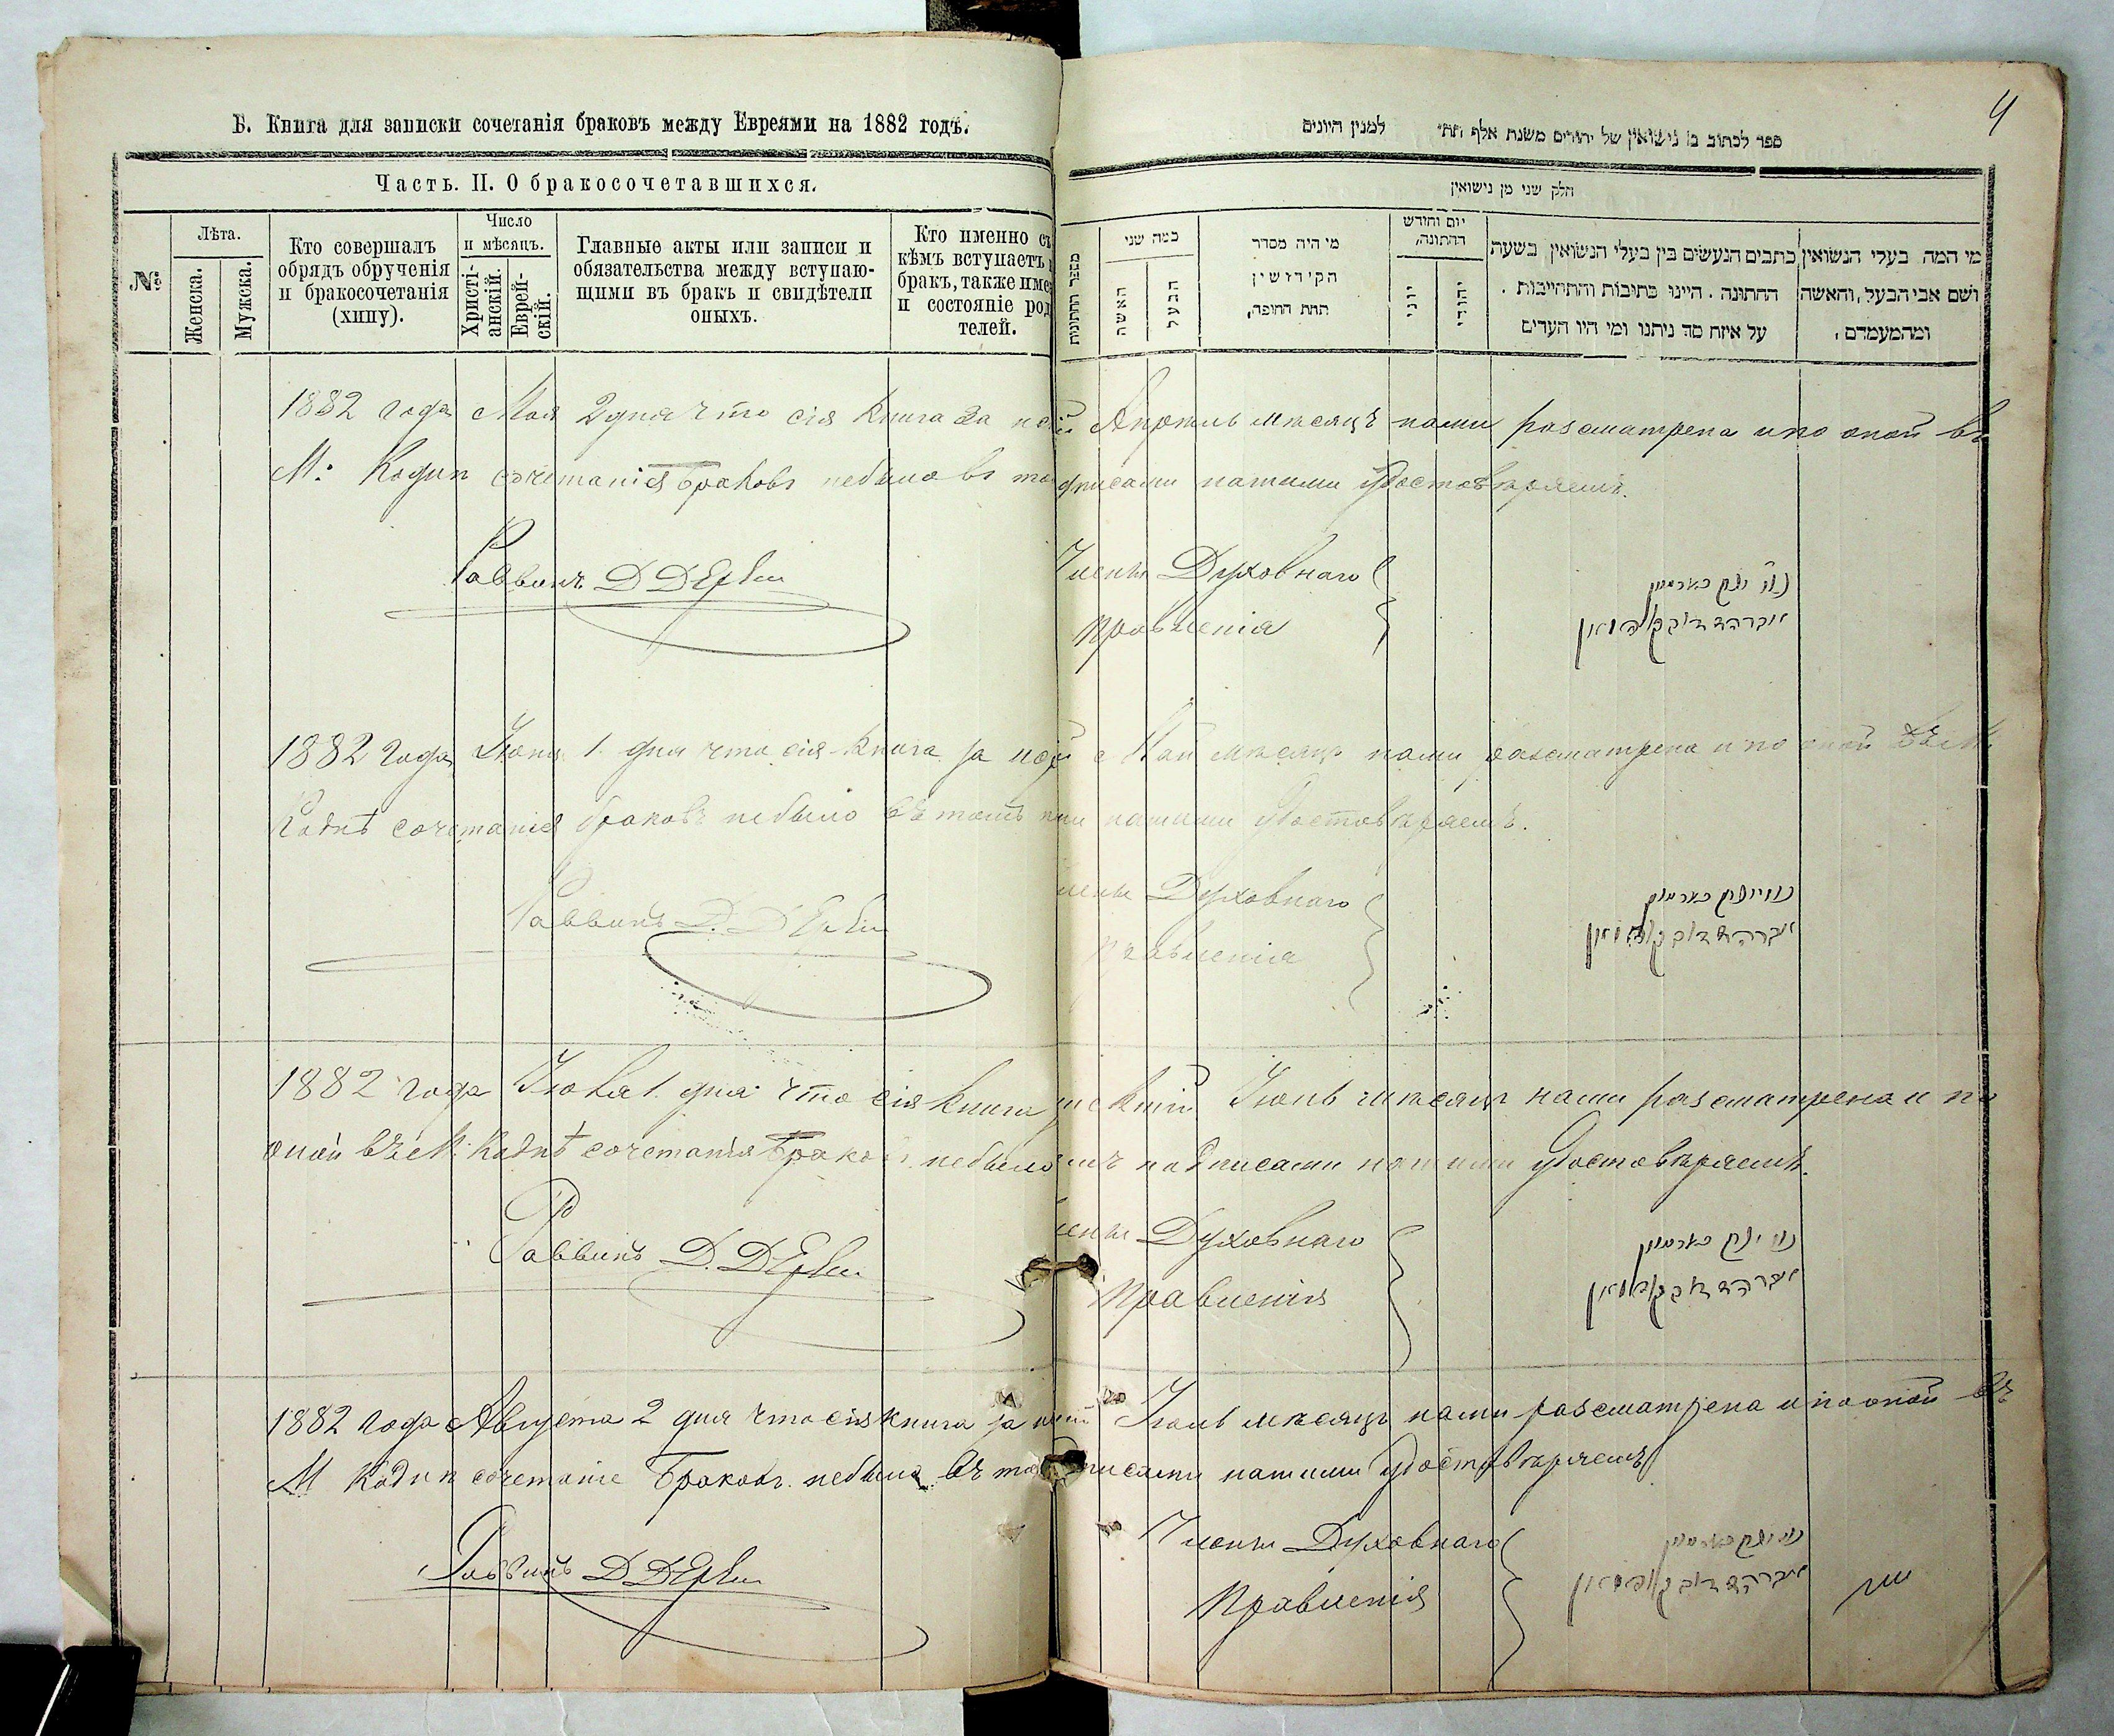 Б. Книга для записки сочетанія браковъ между Евреями на 1882 годъ.
Часть. II. О бракосочетавшихся.
№
Лѣта.
Женска.
Мужска.
Кто совершалъ
обрядъ обрученія
и бракосочетанія
(хипу).
Число
и мѣсяцъ.
Христі-
анскій.
Еврей-
скій.
Главные акты или записи и
обязательства между вступаю-
щими въ бракъ и свидѣтели
оныхъ.
Кто именно съ
кѣмъ вступаетъ
бракъ, также име
и состояніе род
телей.
4
ספר לכתוב בו נישואין של יהודים משנת אלף תת״ למנין היונים
חלק שני מן נישואין
מספר החתונות
כמה שני
האשה
הבעל
מי היה מסדר
הקידושין
תחת החופה,
יום וחודש
החתונה,
יוני
יהודי
כתבים הנעשים בין בעלי הנשואין בשעת
החתונה . היינו כתובות והתחייבות .
על איזה סך ניתנו ומי היו העדים
מי המה בעלי הנשואין,
ושם אבי הבעל, והאשה
ומהמעמדם,
1882 года Мая 2 дня что сія книга за Апрель мѣсяцъ нами разсматрена и по оной въ
М: Кодня сочетанія браковъ небыло въ то дписами нашими удостовѣряемъ.
Раввинъ Д
Члены Духовнаго
Правленія
1882 года Іюня 1 дня что сія книга за Май мѣсяцъ нами разсматрена и по оной въ М.
Коднѣ сочетанія браковъ небыло въ томъ нашими удостовѣряемъ.
Раввинъ Д.
лены Духовнаго
Правленія
1882 года Іюля 1 дня что сія книга Іюнь мѣсяцъ нами разсматрена и по
оной въ М: Коднѣ сочетанія браковъ небыло подписами нашими удостовѣряемъ.
Раввинъ Д.
лены Духовнаго
Правленія
1882 года Августа 2 дня что сія книга за Іюль мѣсяцъ нами разсматрена и по оной въ
М Кодня сочетаніе браковъ небыло въ то писами нашими удостовѣряемъ
Раввинъ Д
Члены Духовнаго
Правленія